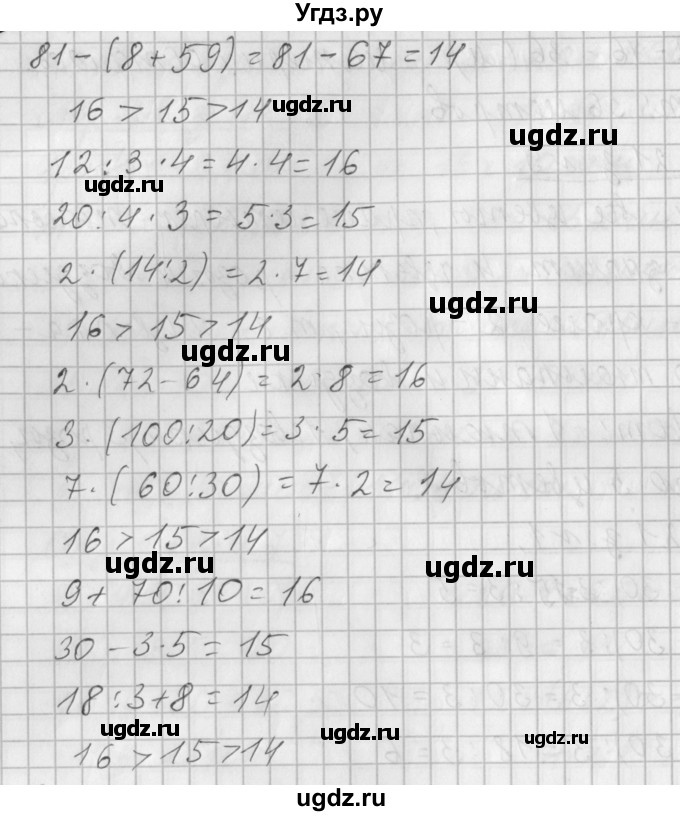 Угдз.ру
81 - (8 + 59) = 81 - 67 = 14
16 > 15 > 14
ugdz.ru
ugdz.ru
12 : 3 · 4 = 4 · 4 = 16
ugdz.ru
20 : 4 · 3 = 5 · 3 = 15
2 · (14 : 2) = 2 · 7 = 14
ugdz.ru
16 > 15 > 14
ugdz.ru
2 · (72 - 64) = 2 · 8 = 16
3 · (100 : 20) = 3 · 5 = 15
7 · (60 : 30) = 7 · 2 = 14
16 > 15 > 14
ugdz.ru
ugdz.ru
9 + 70 : 10 = 16
30 - 3 · 5 = 15
18 : 3 + 8 = 14
ugdz.ru
ugdz.ru
ugdz.ru
16 > 15 > 14
ugdz.ru